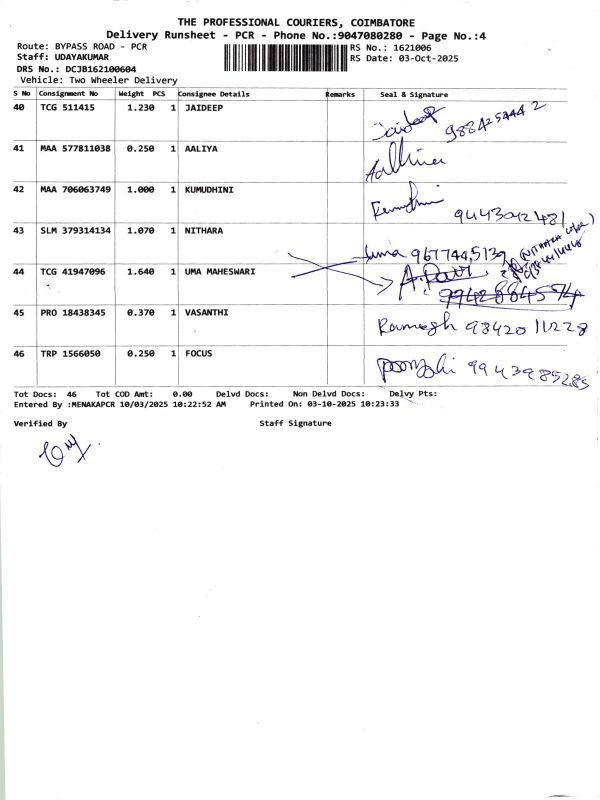 THE PROFESSIONAL COURIERS, COIMBATORE
Delivery Runsheet - PCR - Phone No.:9047080280 - Page No.:4
Route: BYPASS ROAD - PCR
RS No.: 1621006
Staff: UDAYAKUMAR
RS Date: 03-Oct-2025
DRS No.: DCJB162100604
Vehicle: Two Wheeler Delivery
S No Consignment No Weight PCS Consignee Details Remarks Seal & Signature
40 TCG 511415 1.230 1 JAIDEEP
Jaideep 9884254442
41 MAA 577811038 0.250 1 AALIYA
42 MAA 706063749 1.000 1 KUMUDHINI
9443042481
43 SLM 379314134 1.070 1 NITHARA
Uma 9677445139
44 TCG 41947096 1.640 1 UMA MAHESWARI
45 PRO 18438345 0.370 1 VASANTHI
Ramesh 9842011228
46 TRP 1566050 0.250 1 FOCUS
9943985285
Tot Docs: 46 Tot COD Amt: 0.00 Delvd Docs: Non Delvd Docs: Delvy Pts:
Entered By :MENAKAPCR 10/03/2025 10:22:52 AM Printed On: 03-10-2025 10:23:33
Verified By Staff Signature